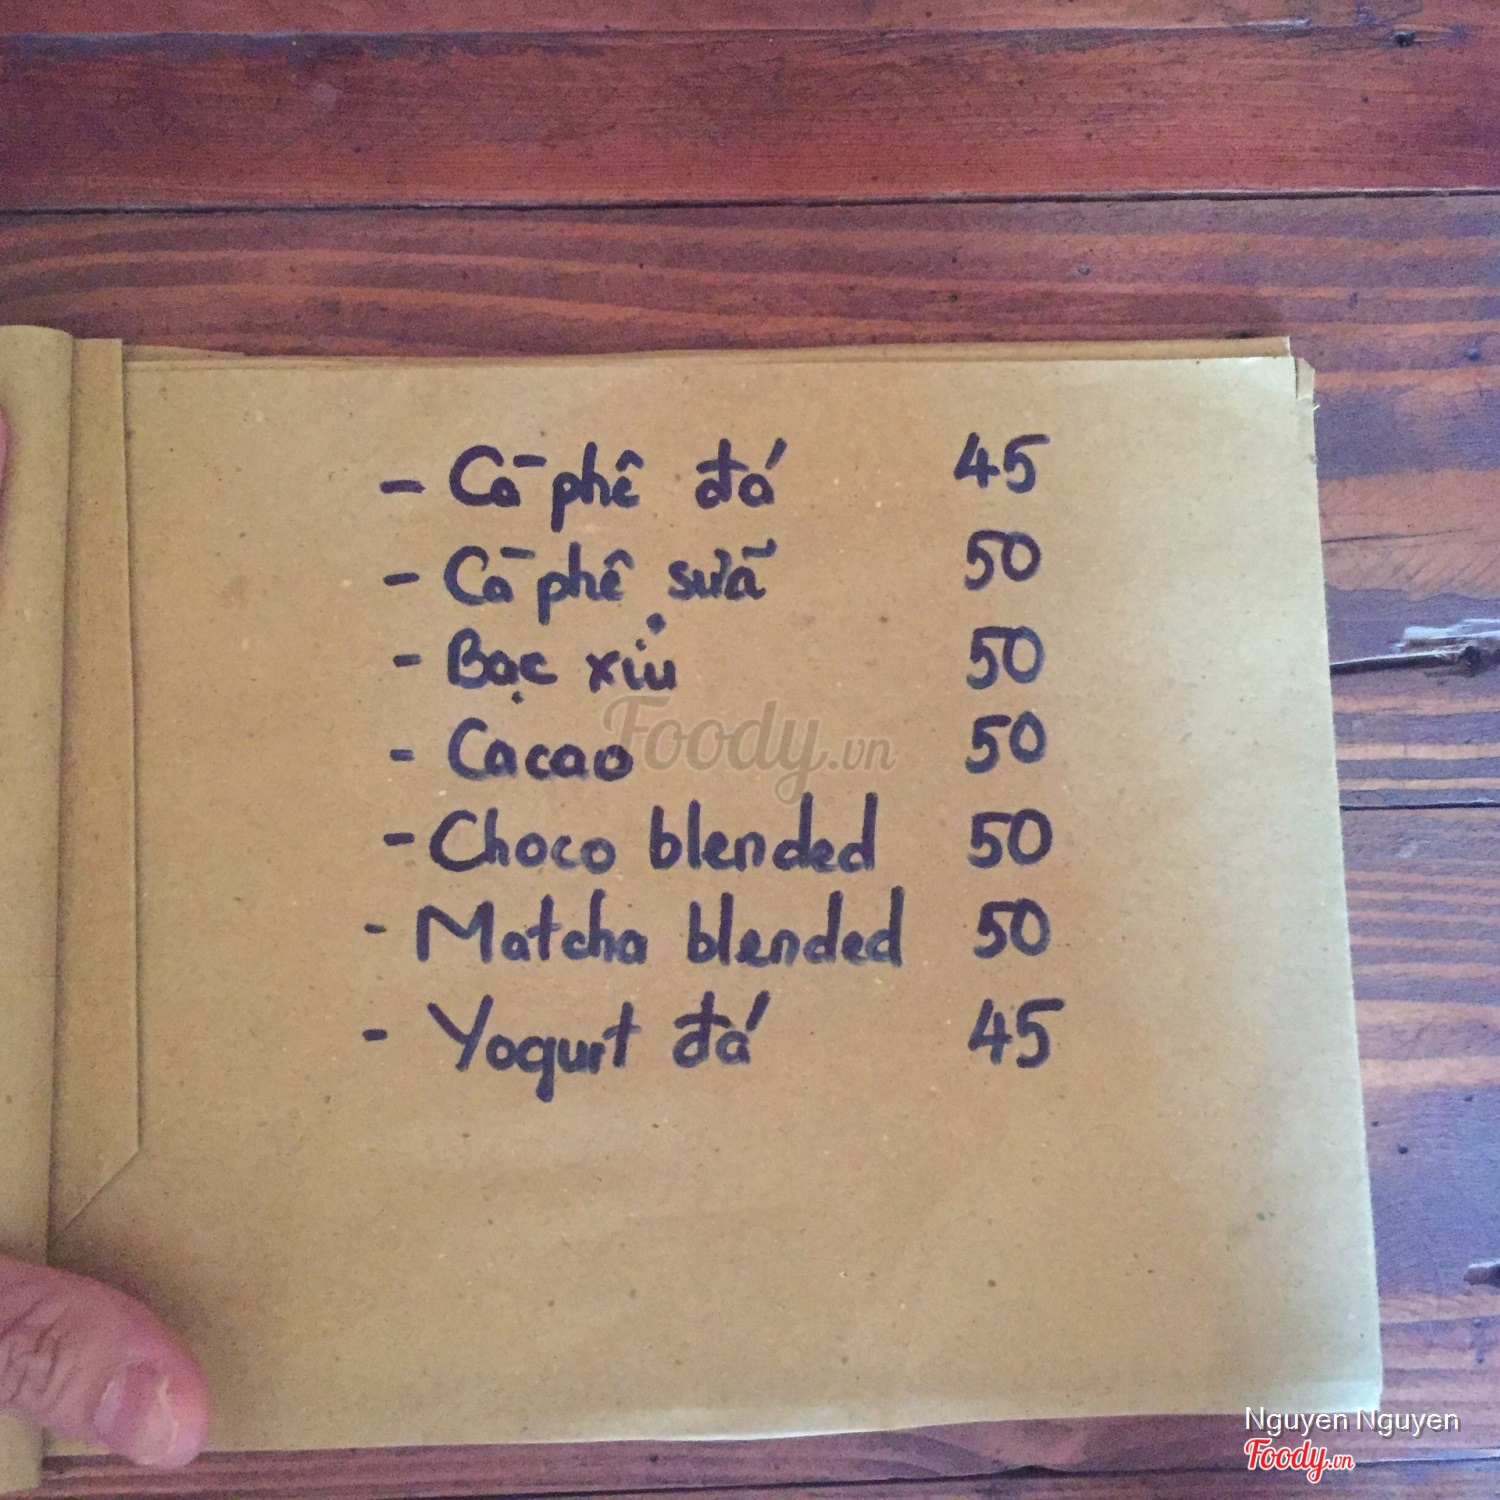 - Cà phê đá 45
- Cà phê sữa 50
- Bạc xỉu 50
- Cacao 50
Foody.vn
- Choco blended 50
- Matcha blended 50
- Yogurt đá 45
Nguyen Nguyen
Foody.vn